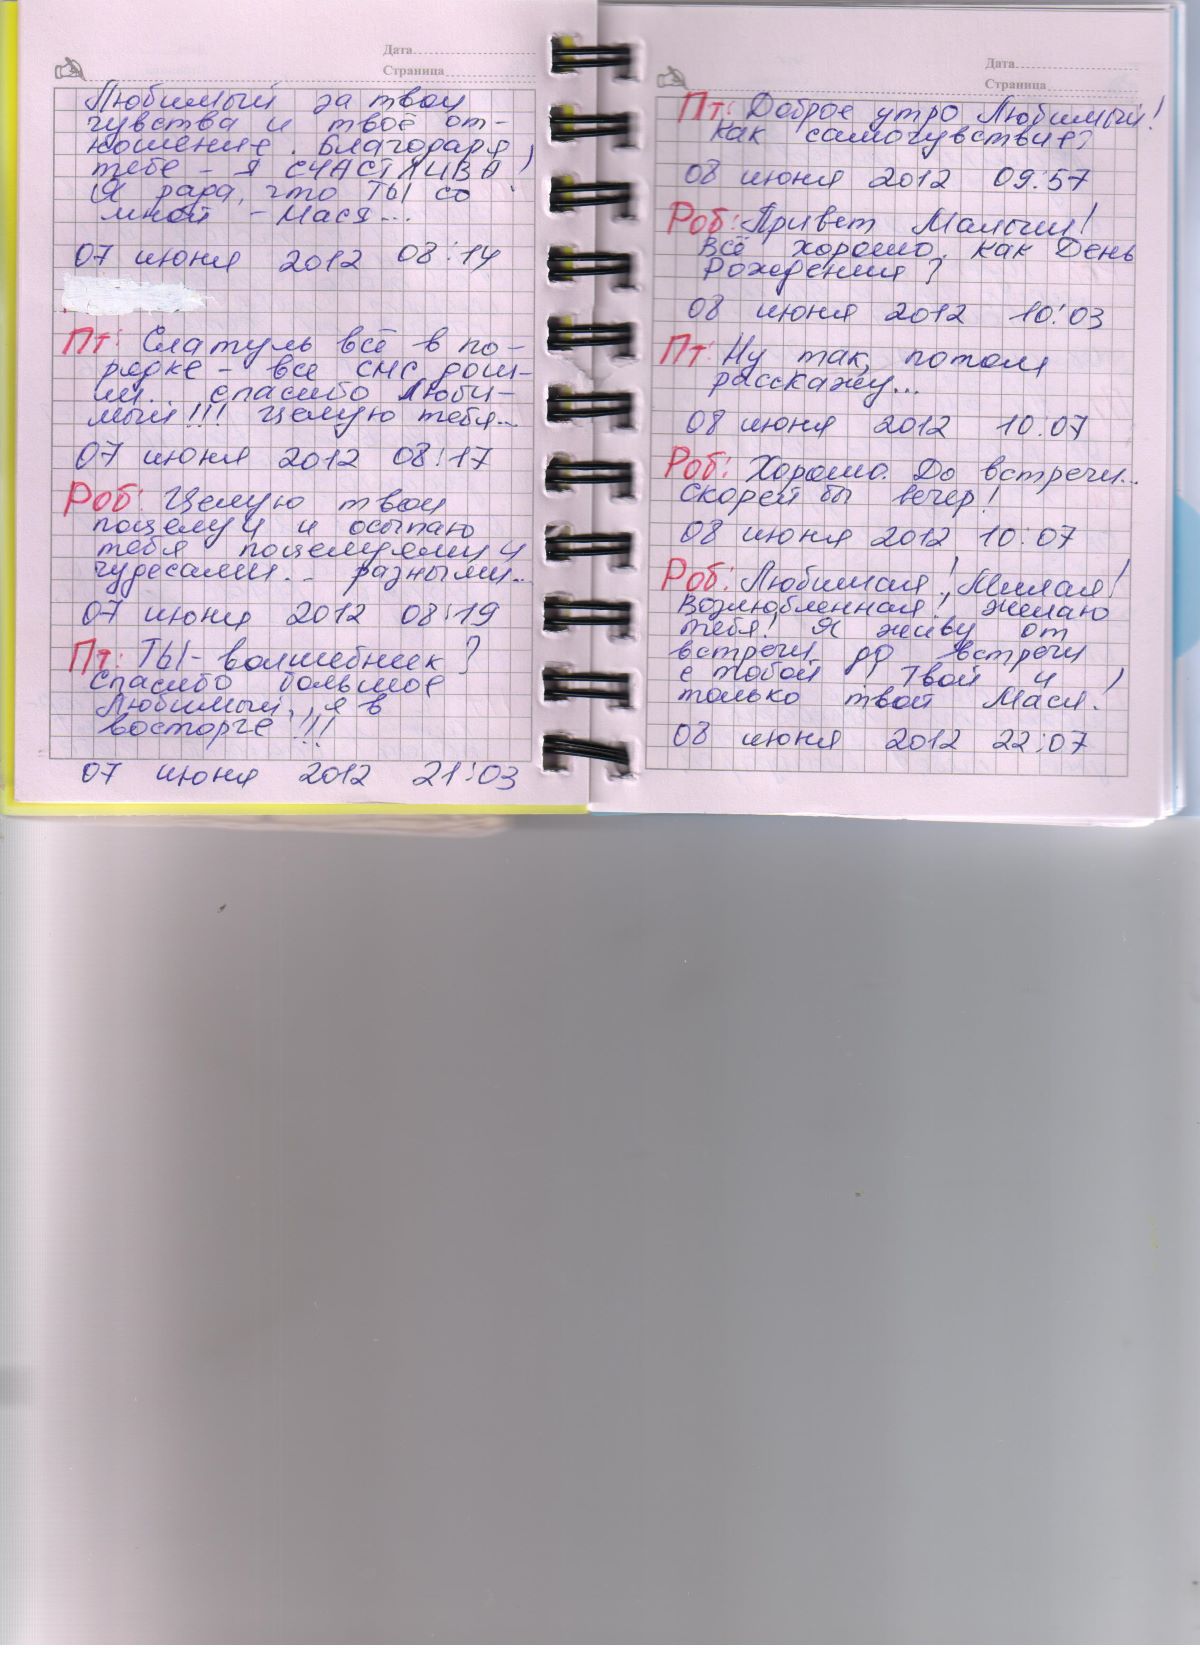 Дата
Страница
Любимый за твои
чувства и твоё от-
ношение. Благодаря
тебе - я СЧАСТЛИВА!
Я рада, что ТЫ со
мной - Мася...
07 июня 2012 08:14
Пт: Слатуль всё в по-
рядке - все СМС дош-
ли.. спасибо Люби-
мый!!! Целую тебя...
07 июня 2012 08:17
Роб: Целую твои
поцелуи и осыпаю
тебя поцелуями и
чудесами... разными...
07 июня 2012 08:19
Пт: ТЫ - волшебник?
Спасибо большое
Любимый, я в
восторге!!!
07 июня 2012 21:03
Дата
Страница
Пт: Доброе утро Любимый!
Как самочувствие?
08 июня 2012 09:57
Роб: Привет Малыш!
Всё хорошо. Как День
Рождения?
08 июня 2012 10:03
Пт: Ну так, потом
расскажу...
08 июня 2012 10:07
Роб: Хорошо. До встречи...
Скорей бы вечер!
08 июня 2012 10:07
Роб: Любимая! Милая!
Возлюбленная! Желаю
тебя! Я живу от
встречи до встречи
с тобой. Твой и
только твой Мася!
08 июня 2012 22:07